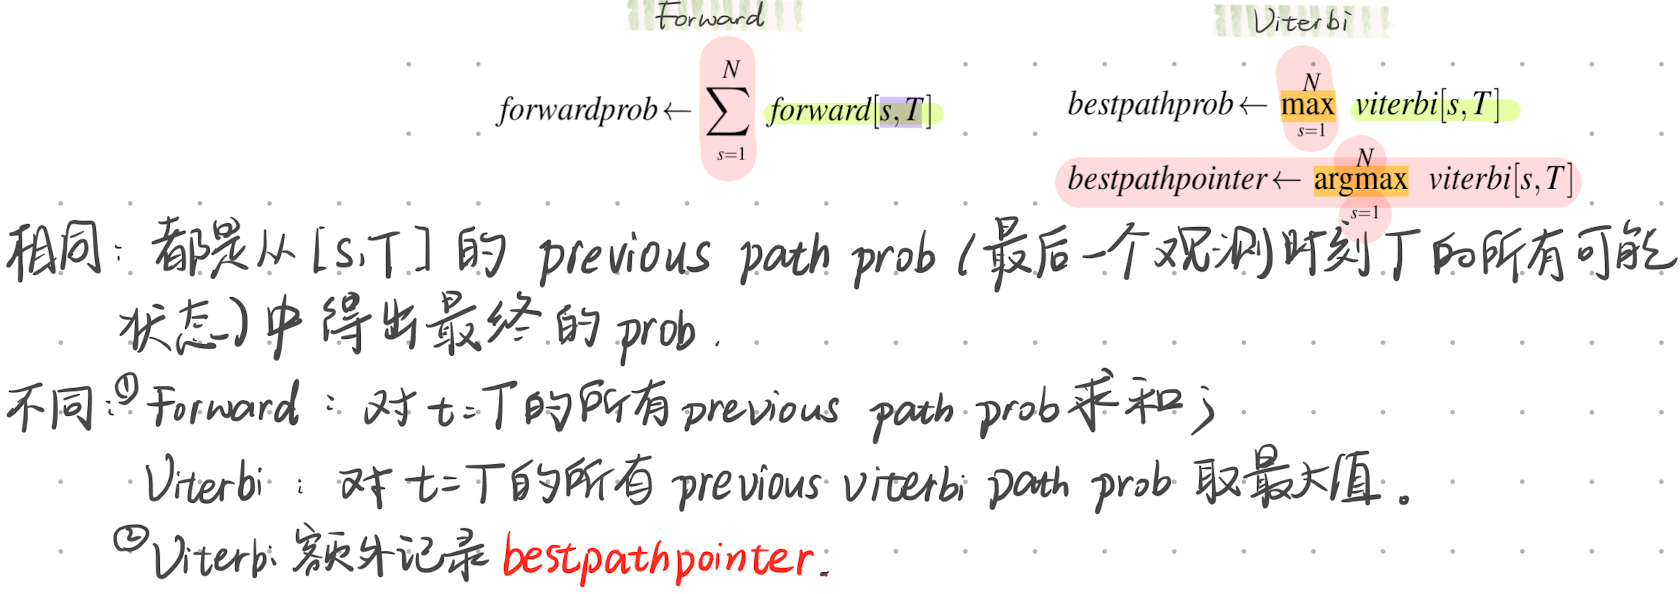 Forward
Viterbi
forwardprob ← ∑_{s=1}^{N} forward[s,T]
bestpathprob ← max_{s=1}^{N} viterbi[s,T]
bestpathpointer ← argmax_{s=1}^{N} viterbi[s,T]
相同：都是从[s,T]的 previous path prob（最后一个观测时刻T的所有可能
状态）中得出最终的prob.
不同：① Forward：对t=T的所有previous path prob求和；
Viterbi：对t=T的所有previous viterbi path prob取最大值。
② Viterbi 额外记录 bestpathpointer.